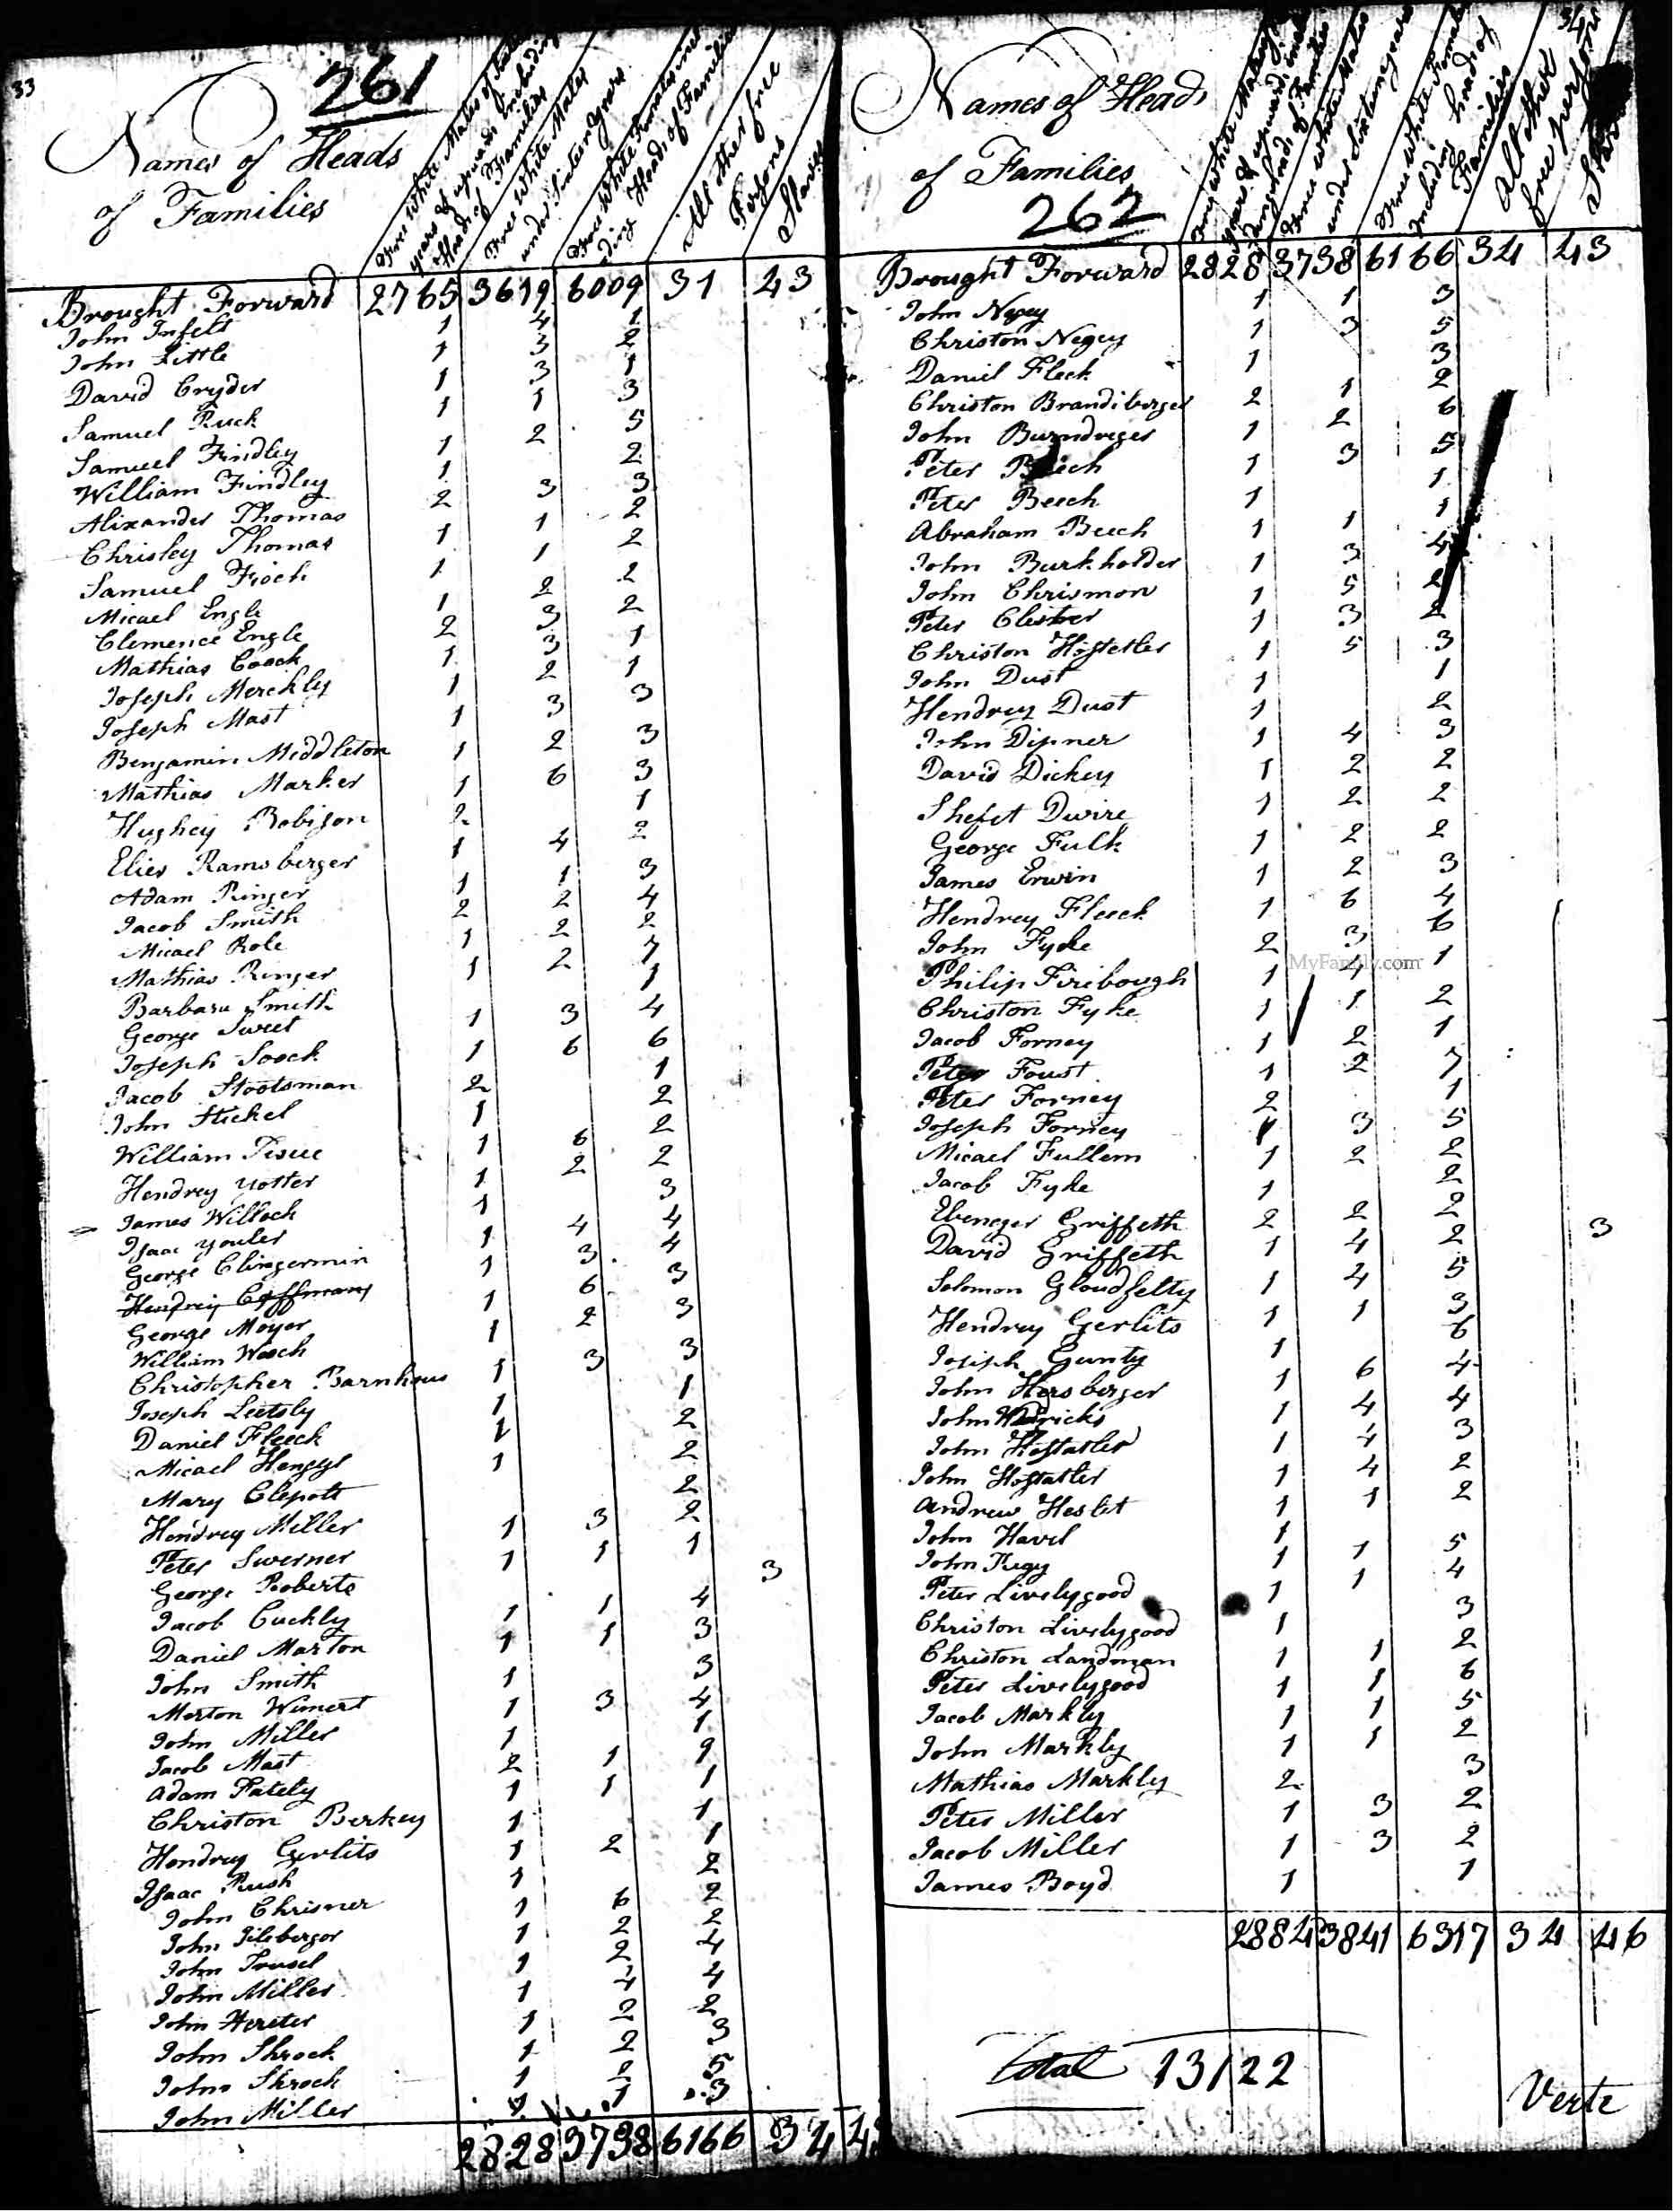 33
261
Names of Heads
of Families
Free White Males of Sixteen
years & upwards Including
Heads of Families
Free White Males
under Sixteen years
Free White Females inclu
ding Heads of Families
All other free
Persons
Slaves
Brought Forward 2765 3619 6009 31 43
John Infelt 1 4 1
John Little 1 3 2
David Cryder 1 3 1
Samuel Ruck 1 1 3
Samuel Findley 1 2 5
William Findley 1 2
Alixander Thomas 2 3 3
Chrisley Thomas 1 1 2
Samuel Fioch 1 1 2
Micael Engle 1 2 2
Clemence Engle 2 3 2
Mathias Coock 1 3 1
Joseph Merckly 1 2 1
Joseph Mast 1 3 3
Benjamin Middleton 1 2 3
Mathias Marker 1 6 3
Hughey Robison 2 1
Elies Ramsberger 1 4 2
Adam Ringer 1 1 3
Jacob Smith 2 2 4
Micael Role 1 2 2
Mathias Ringer 1 2 7
Barbara Smith 1
George Sweet 1 3 4
Joseph Soock 1 6 6
Jacob Stootsman 2 1
John Stickel 1 2
William Tisue 1 6 2
Hendrey Yotter 1 2 2
James Willock 1 3
Isaac Youler 1 4 4
George Clingermin 1 3 4
Hendrey Coffman 1 6 3
George Moyer 1 2 3
William Wesch
Christopher Barnhous 1 3 3
Joseph Leetsly 1 1
Daniel Fleeck 1 2
Micael Hengst 1 2
Mary Clepott 2
Hendrey Miller 1 3 2
Peter Swerner 1 1 1
George Roberts 3
Jacob Cuckly 1 1 4
Daniel Marton 1 1 3
John Smith 1 3
Morton Wimert 1 3 4
John Miller 1 1
Jacob Mast 2 1 9
Adam Fately 1 1 1
Christon Berkey 1 1
Hendrey Gerlits 1 2 1
Isaac Rush 1 2
John Chrisner 1 6 2
John Jileberger 1 2 2
John Trusel 1 2 4
John Miller 1 4 4
John Hereter 1 2 2
John Shrock 1 2 3
John Shrock 1 2 5
John Miller 1 1 3
2828 3738 6166 34 43
34
Names of Heads
of Families
262
Free White Males
years & upwards incl
uding heads of Families
Free White Males
under Sixteen years
Free White Females
Including heads of
Families
All other
free persons
Slaves
Brought Forward 2828 3738 6166 34 43
John Negey 1 1 3
Christon Negey 1 3 5
Daniel Fleck 1 3
Christon Brandiberger 2 1 2
John Burndreger 1 2 6
Peter Beech 1 3 5
Peter Beech 1 1
Abraham Beech 1 1 1
John Burkholder 1 3 4
John Chrismon 1 5 2
Peter Clester 1 3 2
Christon Hostetler 1 5 3
John Dust 1 1
Hendrey Dust 1 2
John Dipner 1 4 3
David Dickey 1 2 2
Shefet Dwire 1 2 2
George Fulk 1 2 2
James Erwin 1 2 3
Hendrey Fleeck 1 6 4
John Fyke 2 3 6
MyFamily.com
Philip Firebough 1 4 1
Christon Fyke 1 1 2
Jacob Forney 1 2 1
Peter Foust 1 2 7
Peter Forney 2 1
Joseph Forney 1 3 5
Micael Fullem 1 2 2
Jacob Fyke 1 2
Ebenezer Griffeth 2 2 2
David Griffeth 1 4 2 3
Solomon Gloudfelty 1 4 5
Hendrey Gerlits 1 1 3
Joseph Gunty 1 6
John Hersberger 1 6 4
John Hidricks 1 4 4
John Hostatler 1 4 3
John Hostatler 1 4 2
Andrew Heslet 1 1 2
John Havel 1
John Kegy 1 1 5
Peter Livelygood 1 1 4
Christon Livelygood 1 3
Christon Landman 1 1 2
Peter Livelygood 1 1 6
Jacob Markly 1 1 5
John Markly 1 1 2
Mathias Markley 2 3
Peter Miller 1 3 2
Jacob Miller 1 3 2
James Boyd 1 1
2884 3841 6317 34 46
Total 13122
Verte